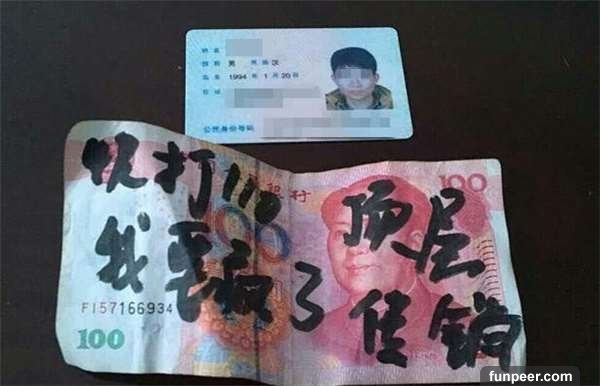 姓名
性别 男 民族 汉
出生 1994 年 1 月 20 日
住址
公民身份号码
快打110 顶层
我要疯了 传销
银行
100
100
FI57166934
100
funpeer.com